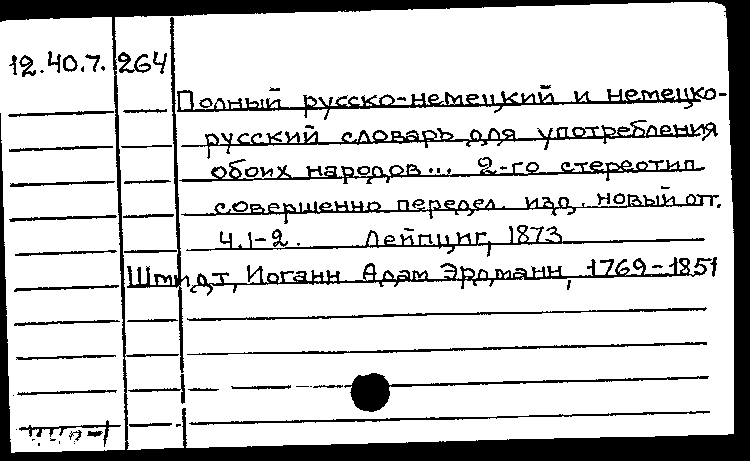 12.40.7. 264
Полный русско-немецкий и немецко-
русский словарь для употребления
обоих народов... 2-го стереотип.
совершенно передел. изд. новый отт.
Ч.1-2. Лейпциг, 1873
Шмидт, Иоганн Адам Эрдманн, 1769-1851